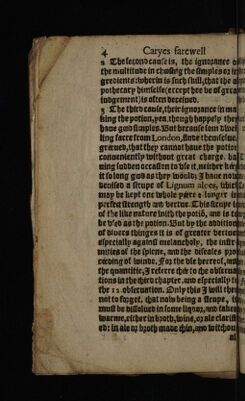 4 Caryes farewell
2 The second cause is, the ignorance of
the multitude in chusing the simples or in
gredients: wherin is such skill, that the a
pothecary himselfe (except hee be of great
iudgement) is often deceiued.
3 The third cause, their ignorance in ma
king the potion, yea, though happely they
haue good simples. But because som dwel
ling farre from London, finde themselues
greeued, that they cannot haue the potion
conueniently without great charge, ha
uing sudden occasion to vse it, neither
it so long good as they would; I haue now
deuised a sirupe of Lignum aloes, which
may be kept one whole yeere & longer in
perfect strength and vertue. This sirupe is
of the like nature with the potiõ, and is to
be vsed as the potion. But by the addition
of diuers thinges it is of greater vertue
especially against melancholy, the infir
mities of the spleene, and the diseases pro
ceeding of winde. For the vse hereof, and
the quantitie, I referre thee to the obserua
tions in the third chapter, and especially to
the 12. obseruation. Only this I will thee
not to forget, that now being a sirupe, it
must be dissolued in some liquor, and taken
warme, either in broth, wine, or ale clarifi
ed: in ale or broth made thin, and without